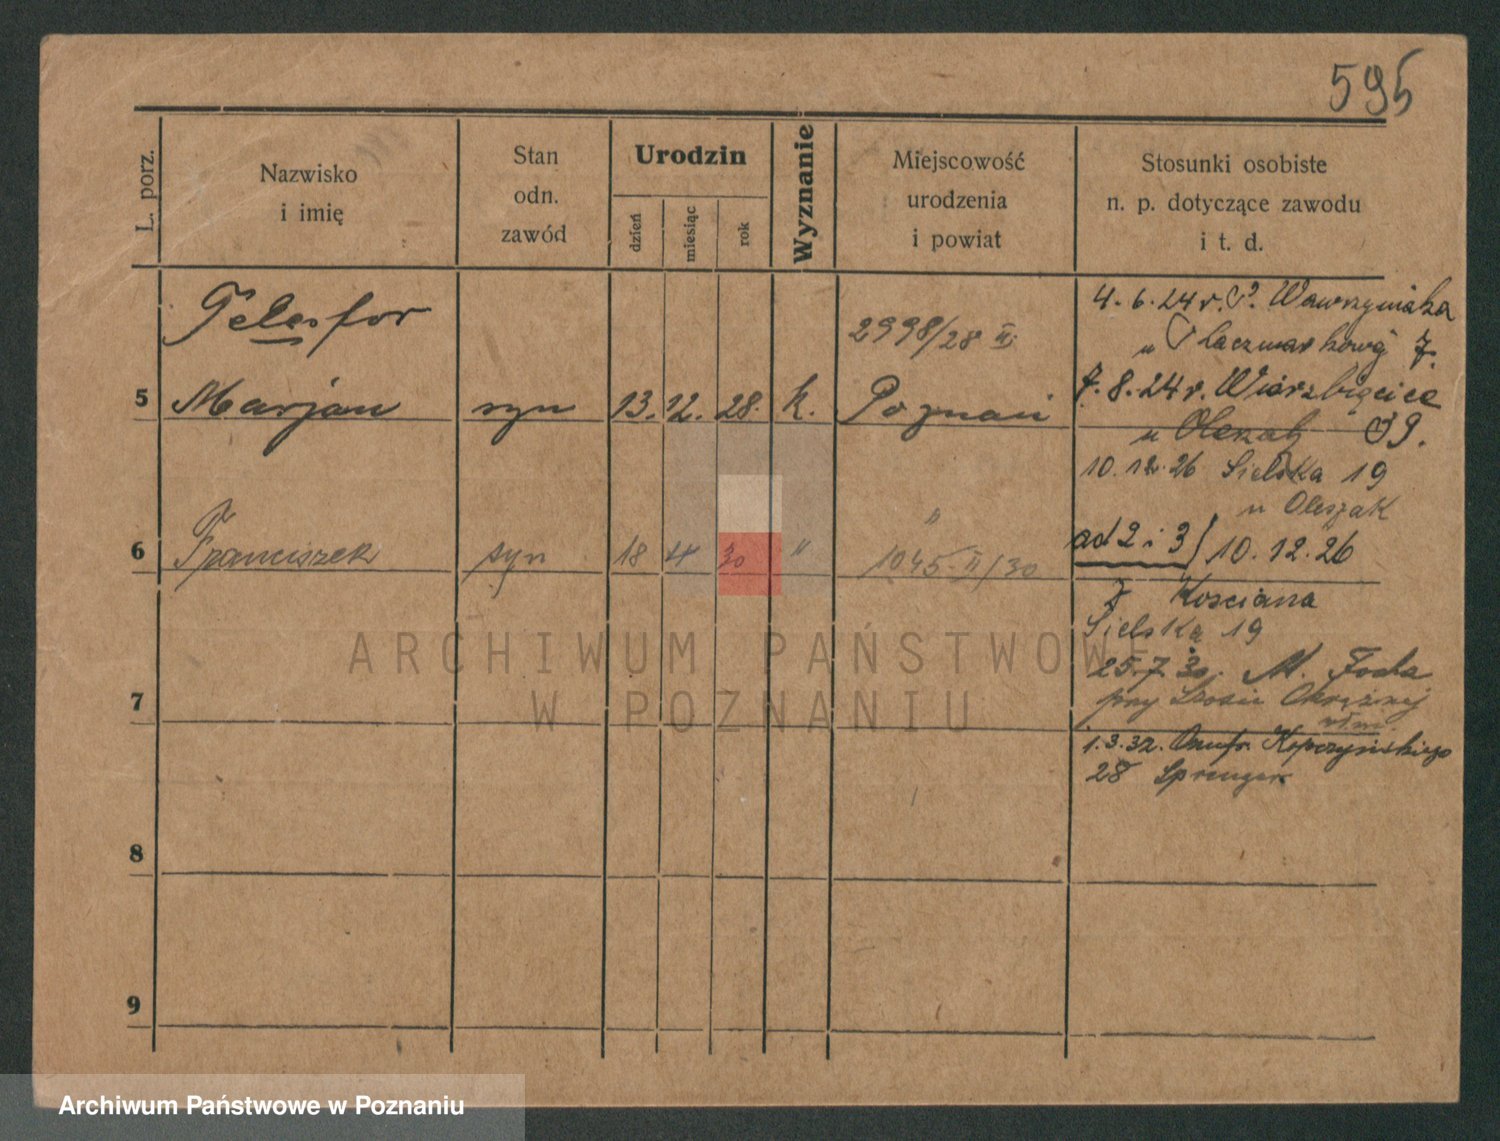 595
L. porz.
Nazwisko
i imię
Stan
odn.
zawód
Urodzin
dzień
miesiąc
rok
Wyznanie
Miejscowość
urodzenia
i powiat
Stosunki osobiste
n. p. dotyczące zawodu
i t. d.
Telesfor
2998/28 II
5 Marjan syn 13. 12. 28. k. Poznań
6 Franciszek syn 18 4 30 " "
1045 II/30
7
8
9
4. 6. 24 r. Wawrzyniaka
u Kaczmarkowej 7.
7. 8. 24 r. Wierzbięcice
u Oleszak 39.
10. 12. 26 Sielska 19
u Oleszak
ad 2 i 3/ 10. 12. 26
z Kościana
Sielska 19
25.7.30. M. Focha
przy Szosie Okrężnej
1.3.32. Onufr. Kopczyńskiego
28 Sprenger
ARCHIWUM PAŃSTWOWE
W POZNANIU
Archiwum Państwowe w Poznaniu